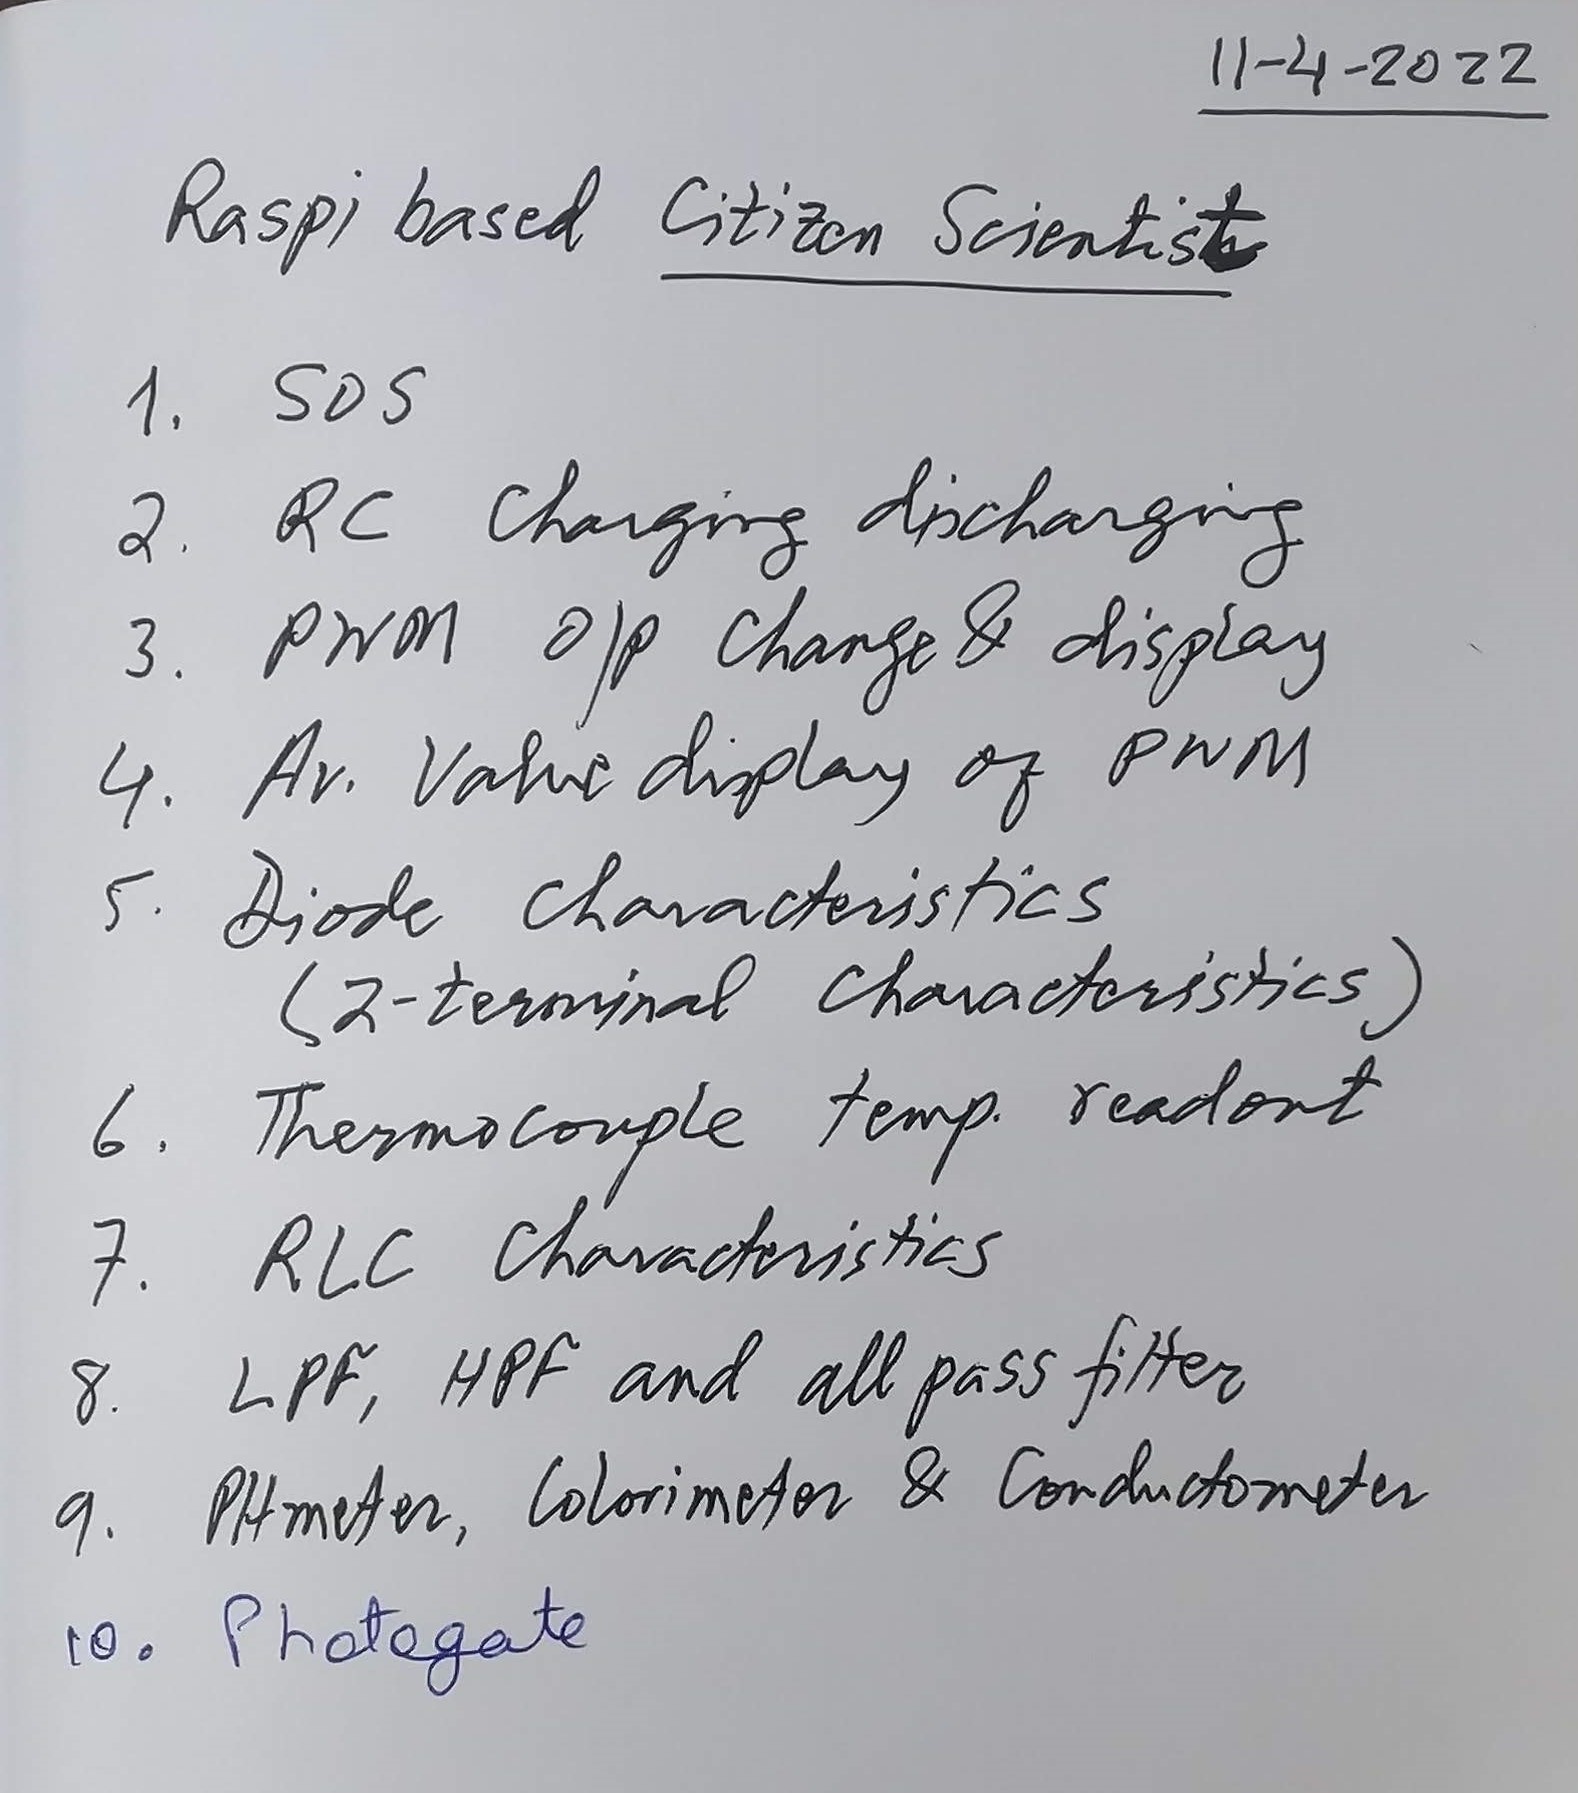 11-4-2022
Raspi based Citizen Scientist
1. SOS
2. RC Charging discharging
3. PWM O/P Change & display
4. Av. Value display of PWM
5. Diode Characteristics
(2-terminal Characteristics)
6. Thermocouple temp. readout
7. RLC Characteristics
8. LPF, HPF and all pass filter
9. PHmeter, Colorimeter & Conductometer
10. Photogate